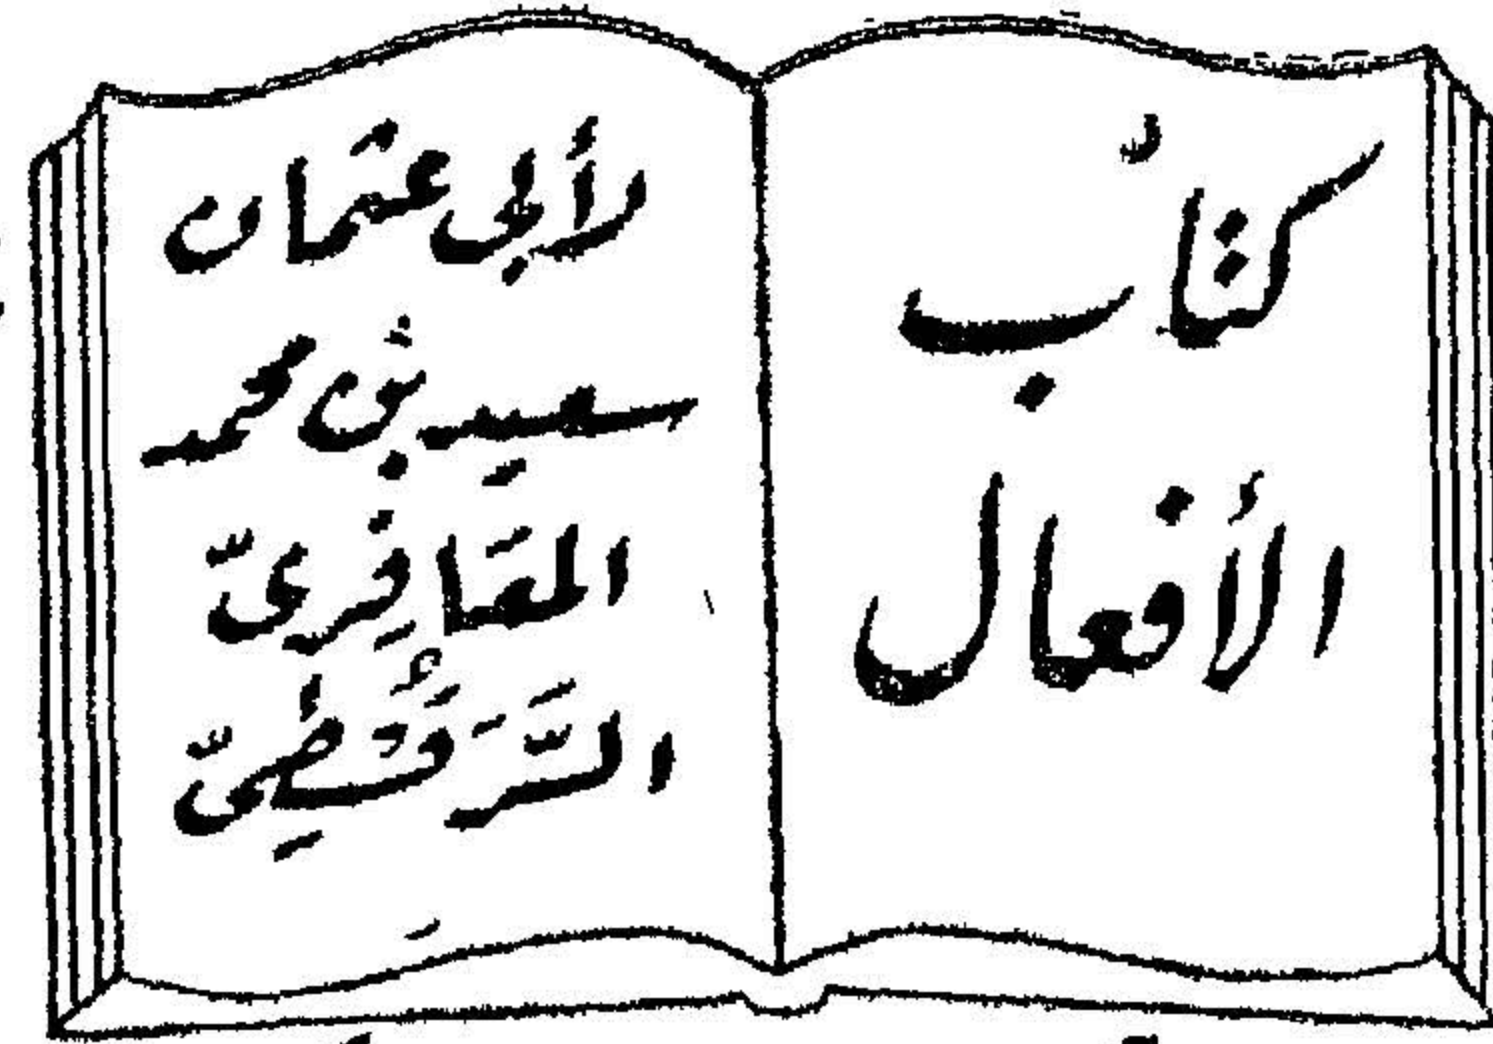 كتاب
الأفعال
لأبي عثمان
سعيد بن محمد
المعَافِرىّ
السَّرَقُسْطِىّ